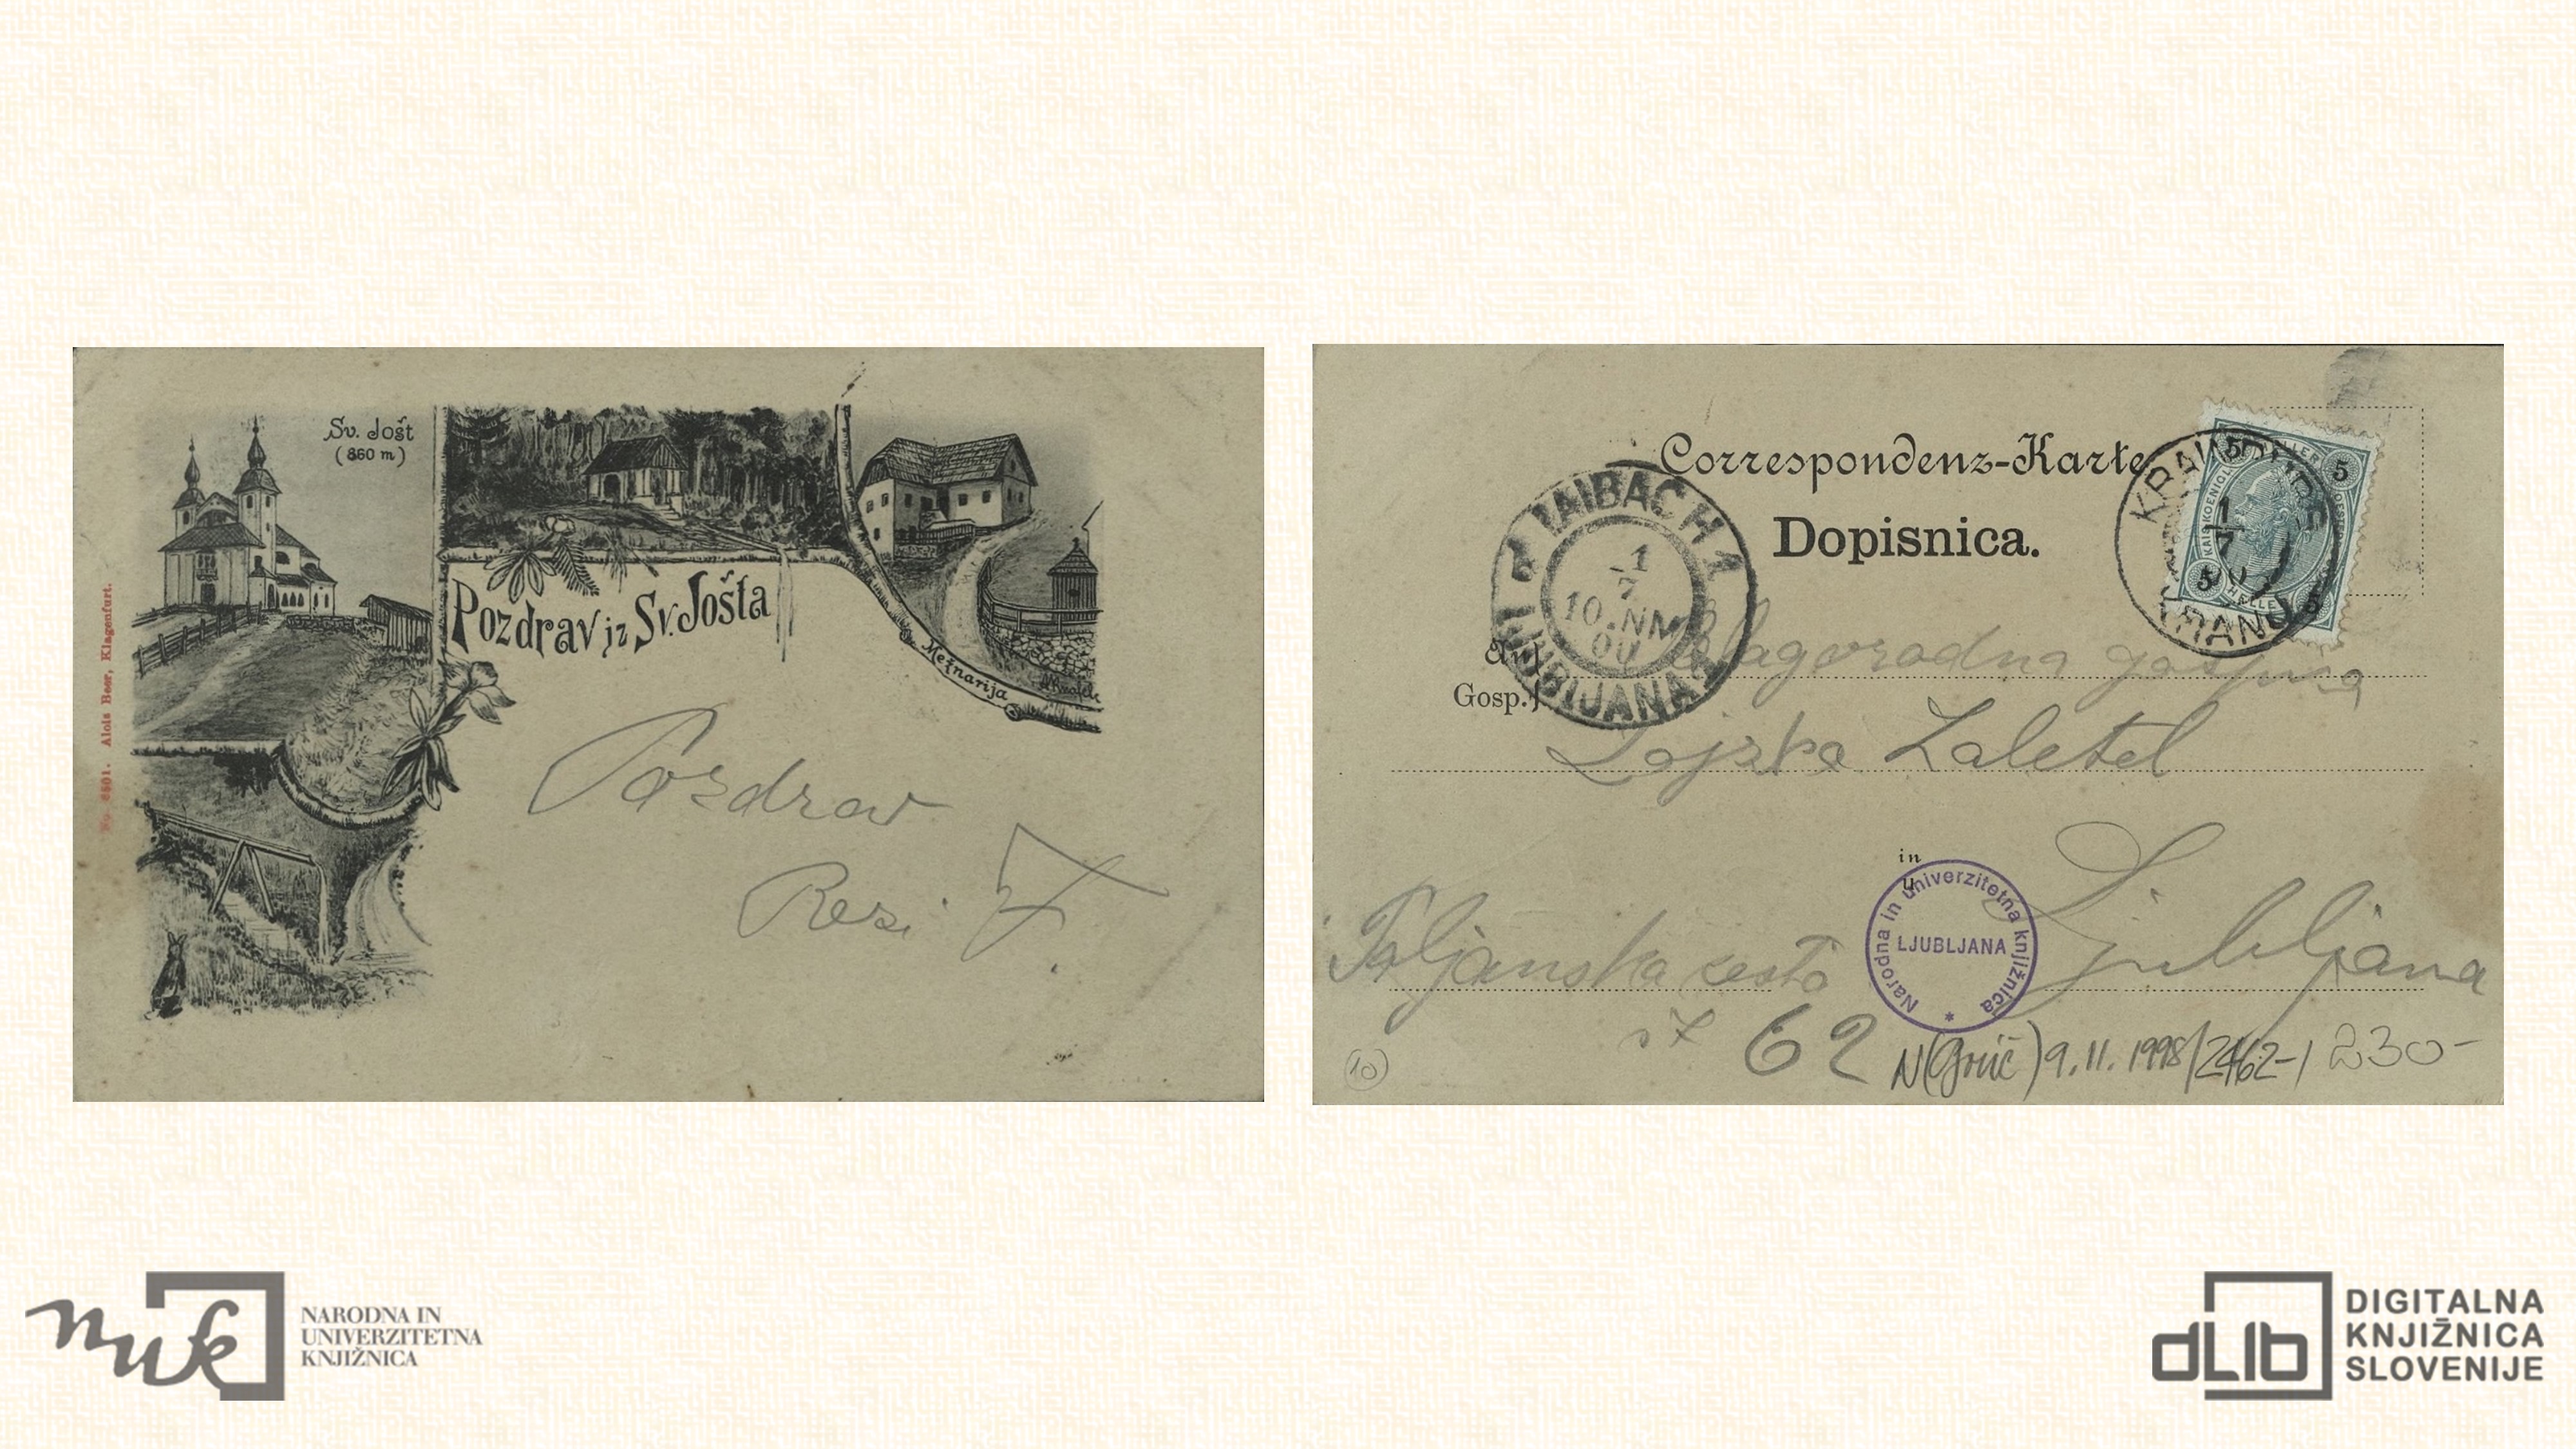 Sv. Jošt
(860 m)
Pozdrav iz Sv. Jošta
Mežnarija
No. 8501. Alois Beer, Klagenfurt.
Pozdrav
Resi
Correspondenz-Karte
Dopisnica.
LAIBACH 1
1
7
10.NM
00
LJUBLJANA 1
KRAINBURG
1
7
KRANJ
5
5
5
5
HELLER
An
Gosp.
Blagorodna gospica
Lojzka Zaletel
in
v
Ljubljana
Poljanska cesta
št 62
Narodna in univerzitetna knjižnica
LJUBLJANA
N(Gruič) 9.11.1998/2462-1 230-
10
nuk
NARODNA IN
UNIVERZITETNA
KNJIŽNICA
dLib
DIGITALNA
KNJIŽNICA
SLOVENIJE